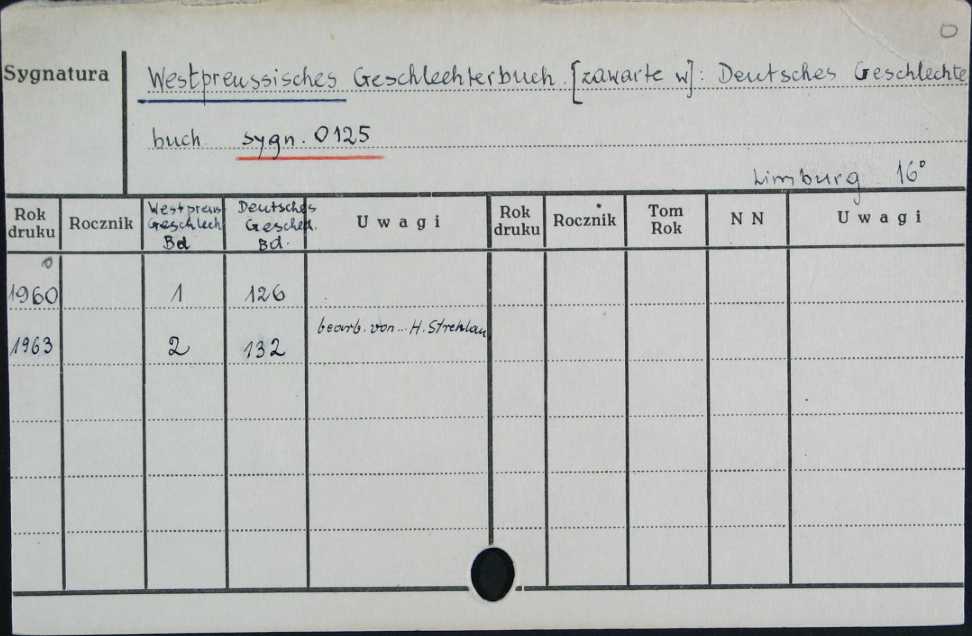 0
Sygnatura
Westpreussisches Geschlechterbuch. [zawarte w]: Deutsches Geschlechte
buch sygn. 0125
Limburg 16°
Rok druku Rocznik Westpreus Geschlech Bd Deutsches Geschl. Bd. Uwagi Rok druku Rocznik Tom Rok NN Uwagi
1960 1 126
1963 2 132 bearb. von.. H. Strehlau